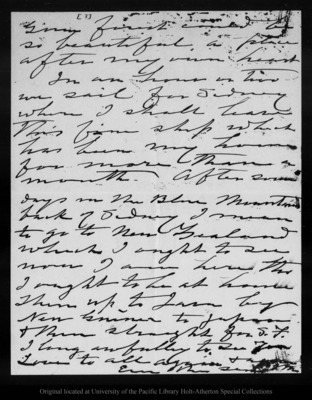 [3]
so beautiful, a place
after my own heart
In an hour or two
we sail for Sidney
where I shall leave
this fine ship which
has been my home
for more than a
month. After some
days in the Blue Mountains
back of Sidney I mean
to go to New Zealand
which I ought to see
now I am here tho
I ought to be at home
Then up to Java by
New Guinea to Japan
& then straight for S.F.
I long awfully to see you
Love to all
Ever
Original located at University of the Pacific Library Holt-Atherton Special Collections